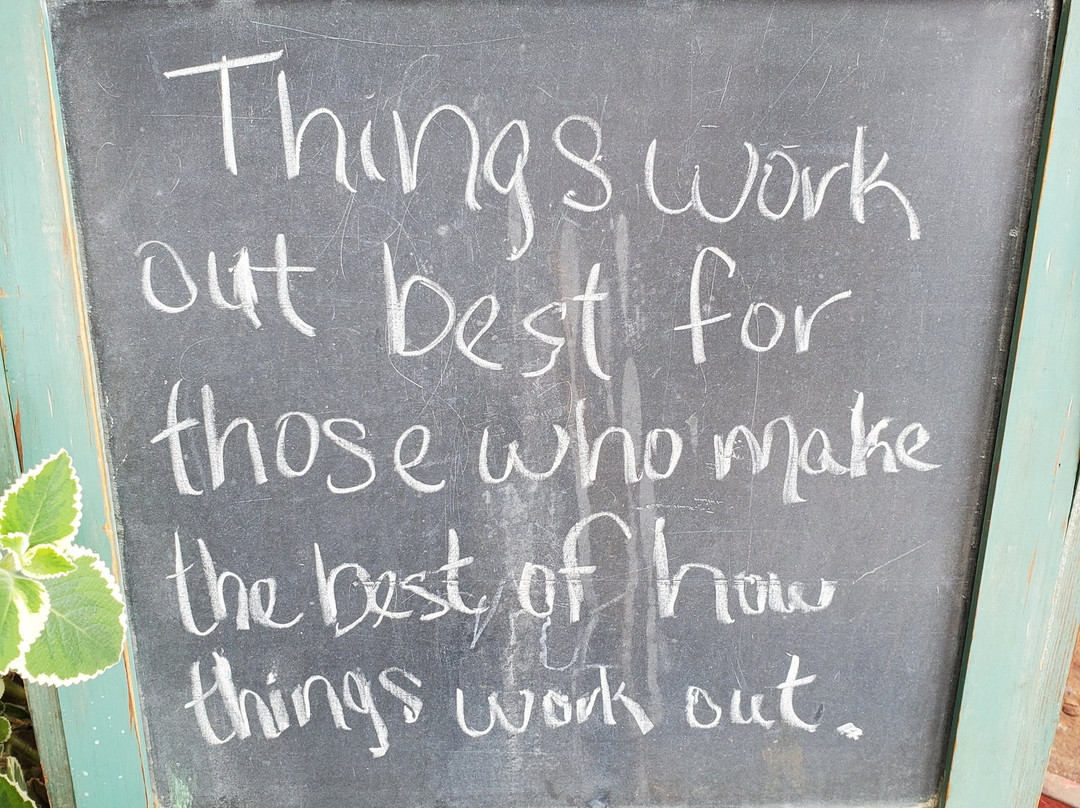 Things work
out best for
those who make
the best of how
things work out.